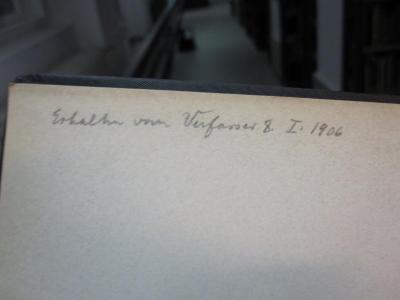 Erhalten vom Verfasser 8. I. 1906